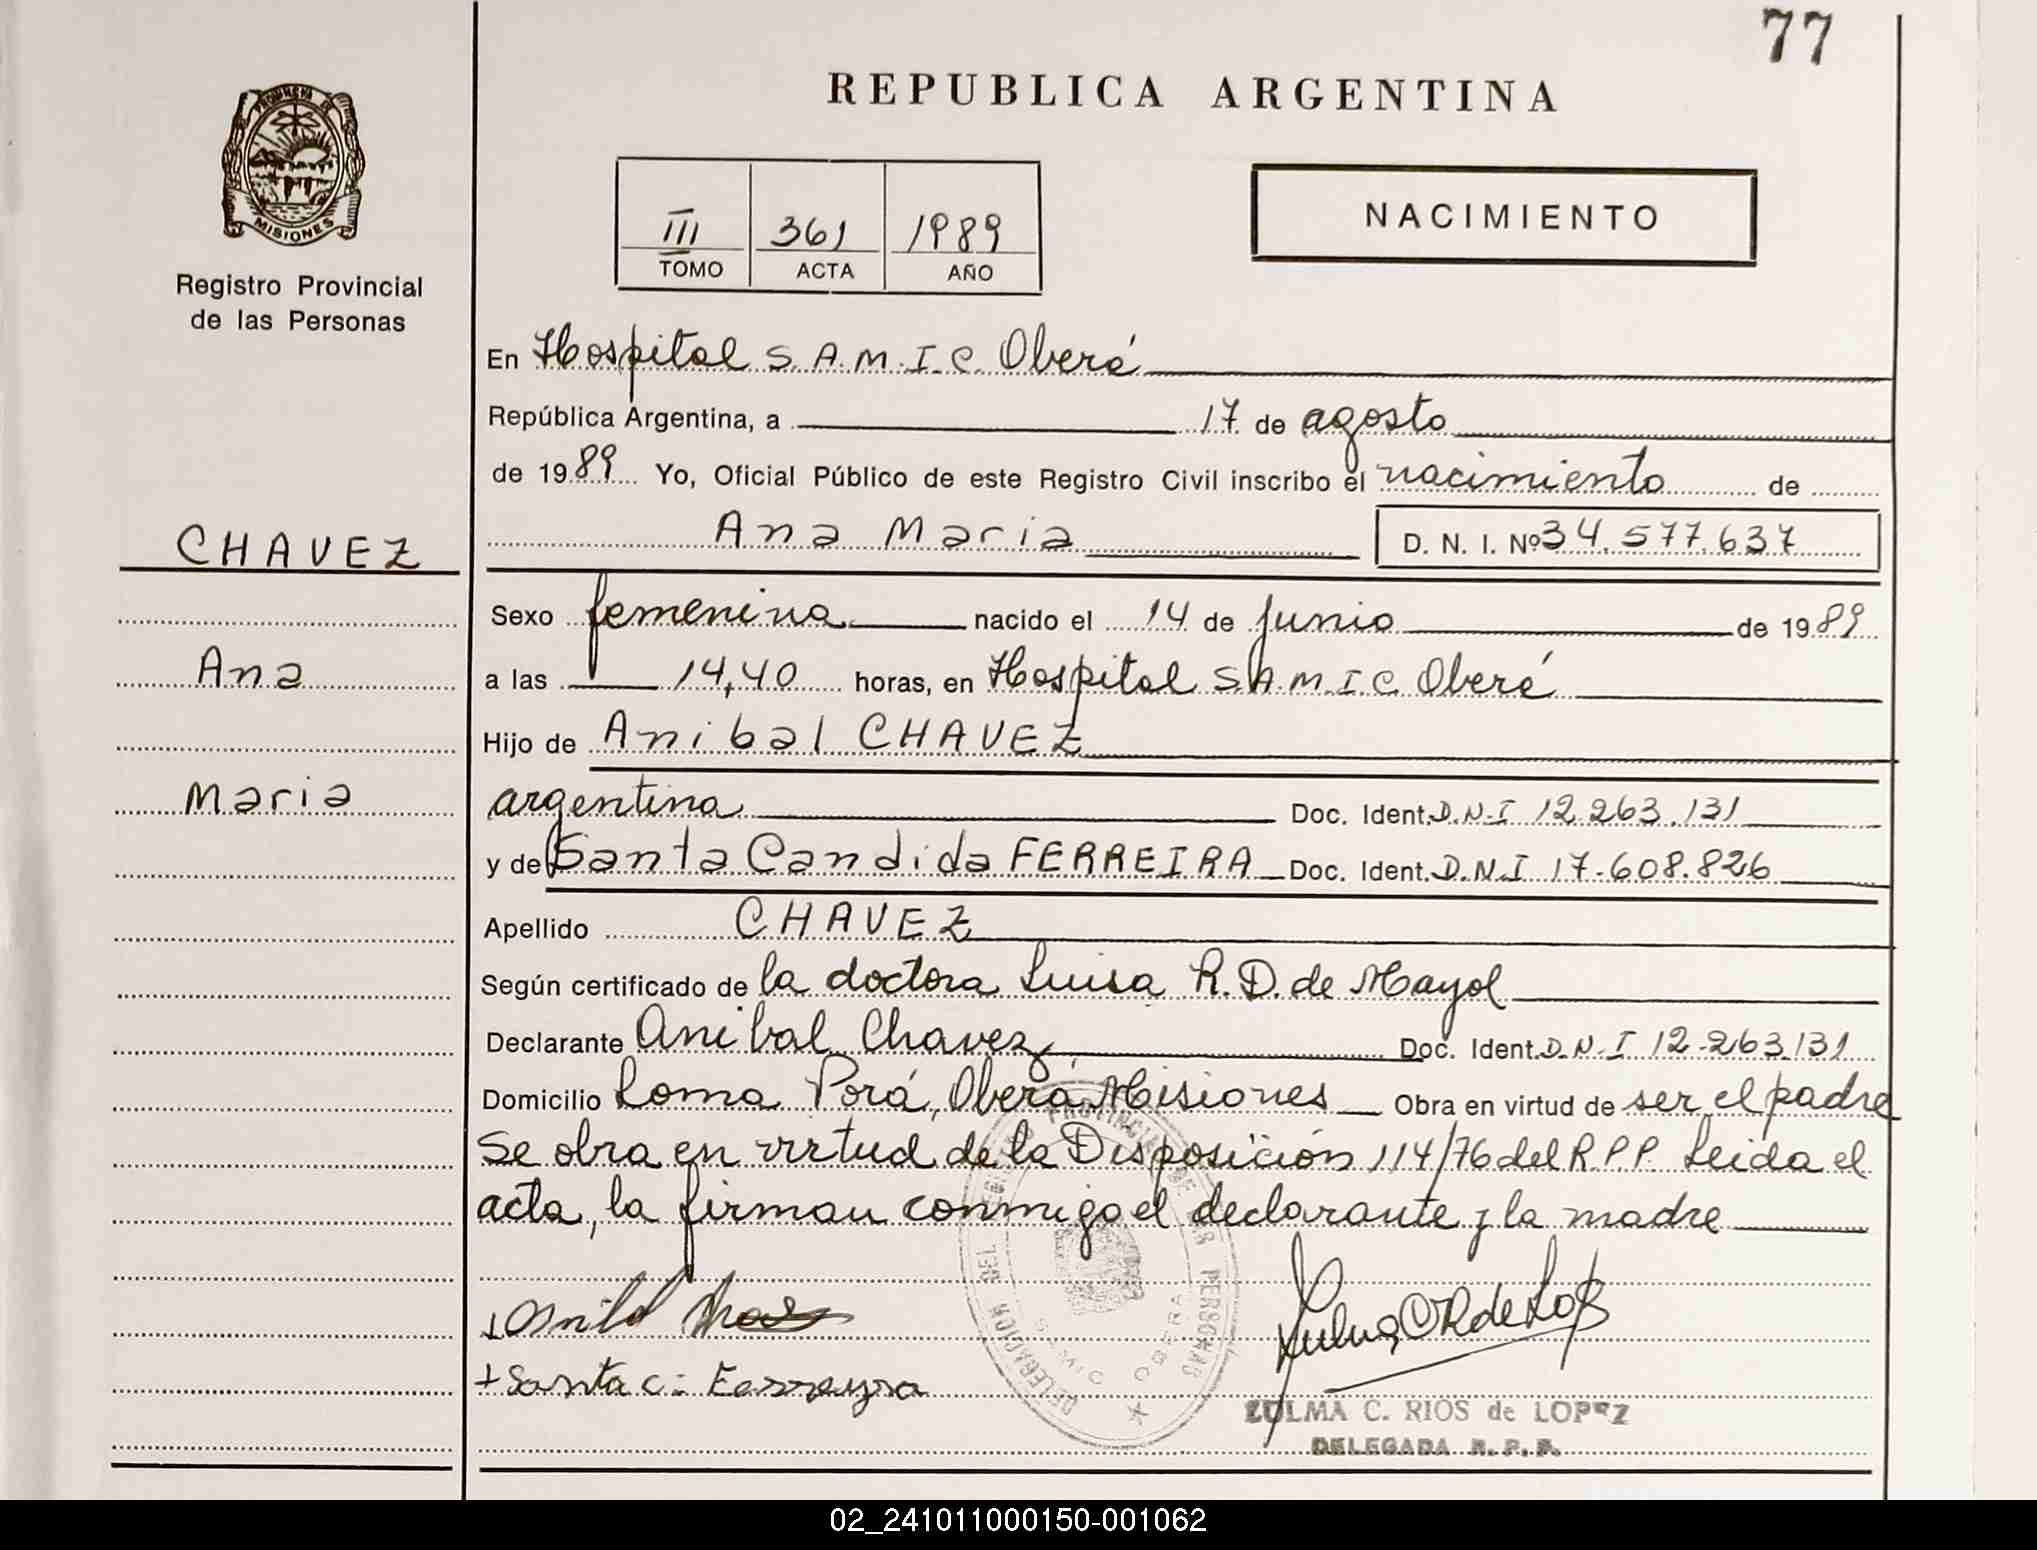 77
REPUBLICA ARGENTINA
PROVINCIA DE
MISIONES
Registro Provincial
de las Personas
III 361 1989
TOMO ACTA AÑO
NACIMIENTO
En Hospital S.A.M.I.C. Oberá
República Argentina, a 17 de agosto
de 1989 Yo, Oficial Público de este Registro Civil inscribo el nacimiento de
CHAVEZ
Ana Maria D. N. I. Nº 34.577.637
Sexo femenina nacido el 14 de junio de 1989
Ana
a las 14,40 horas, en Hospital S.A.M.I.C. Oberá
Hijo de Anibal CHAVEZ
Maria
argentina Doc. Ident. D.N.I 12.263.131
y de Santa Candida FERREIRA Doc. Ident. D.N.I 17.608.826
Apellido CHAVEZ
Según certificado de la doctora Luisa R.D. de Mayol
Declarante Anibal Chavez Doc. Ident. D.N.I 12.263.131
Domicilio Loma Porá, Oberá Misiones Obra en virtud de ser el padre
Se obra en virtud de la Disposición 114/76 del R.P.P. Leida el
acta, la firman conmigo el declarante y la madre
DELEGACION DEL REGISTRO PROVINCIAL DE LAS PERSONAS
OBERA
+ Santa C. Ferreyra
ZULMA C. RIOS de LOPEZ
DELEGADA R.P.P.
02_241011000150-001062